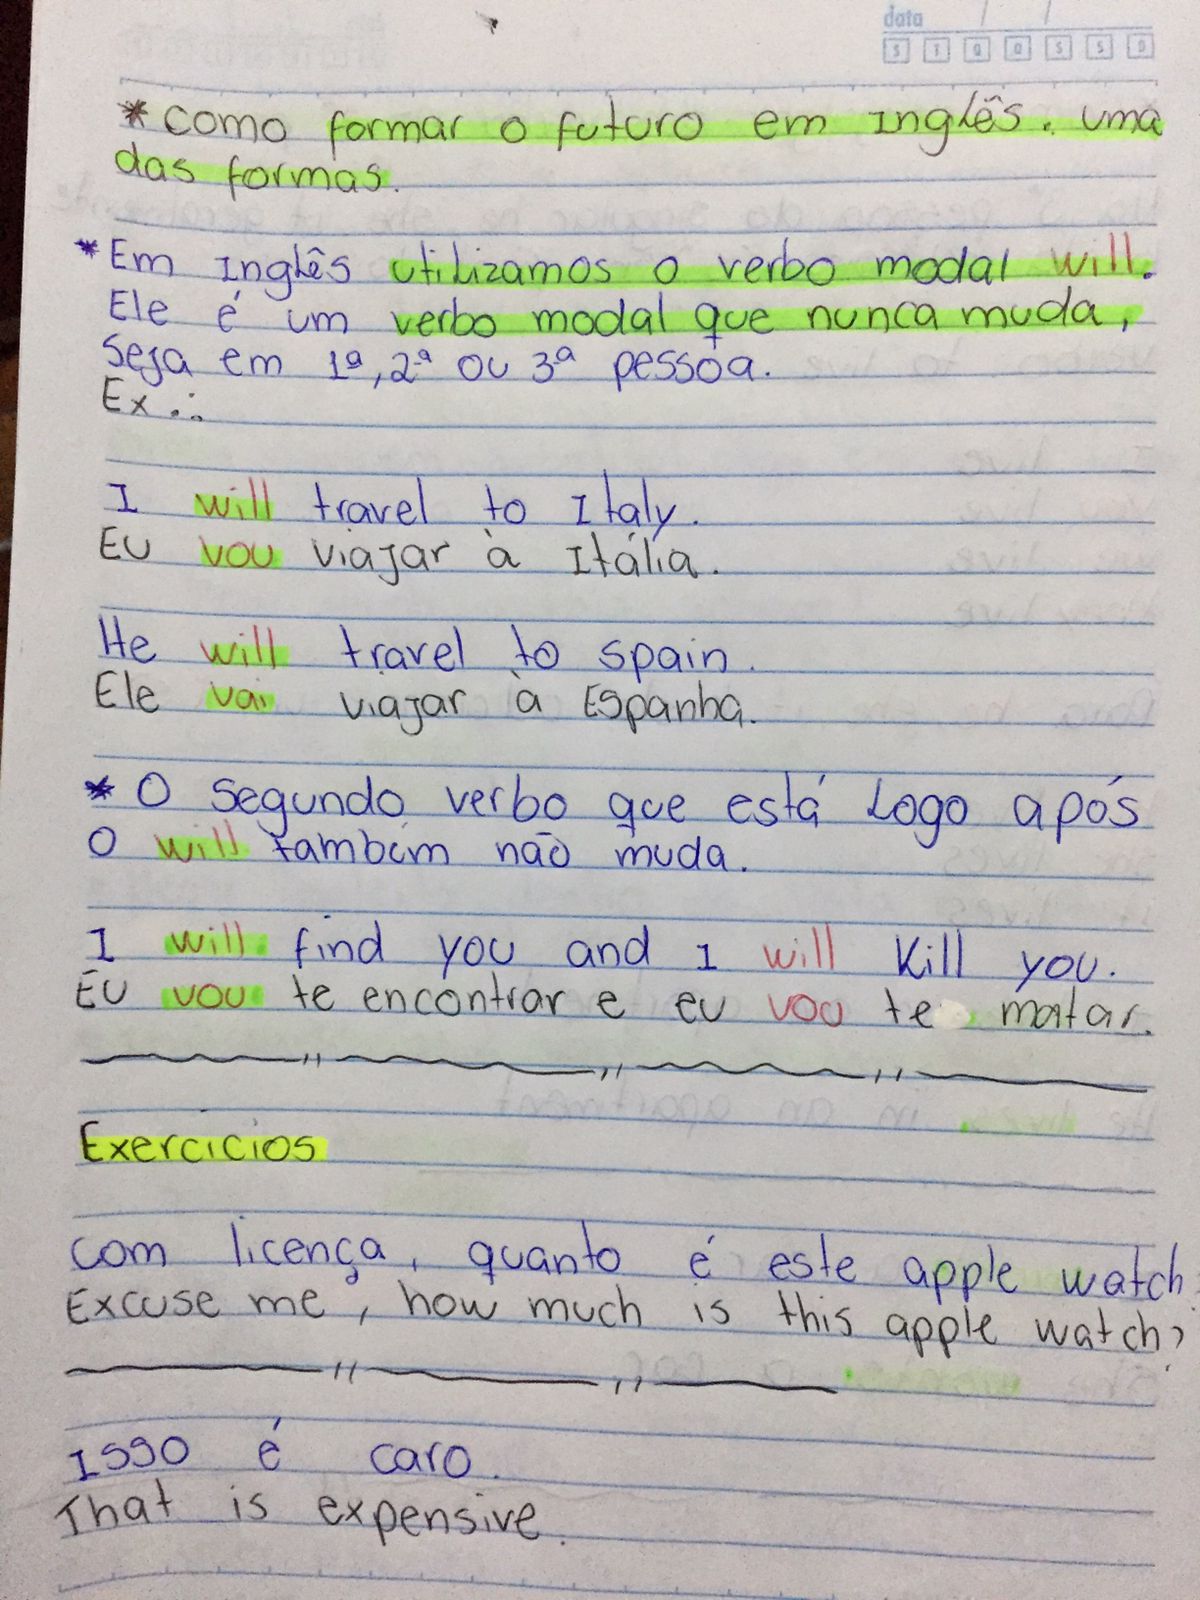 data / /
S T Q Q S S D
* Como formar o futuro em Inglês. uma
das formas.
* Em Inglês utilizamos o verbo modal will.
Ele é um verbo modal que nunca muda,
Seja em 1ª, 2ª ou 3ª pessoa.
Ex.:
I will travel to Italy.
Eu vou viajar à Itália.
He will travel to spain.
Ele vai viajar à Espanha.
* O segundo verbo que está Logo após
O will também não muda.
I will find you and I will Kill you.
Eu vou te encontrar e eu vou te matar.
Exercícios
Com licença, quanto é este apple watch
Excuse me, how much is this apple watch?
Isso é caro.
That is expensive.